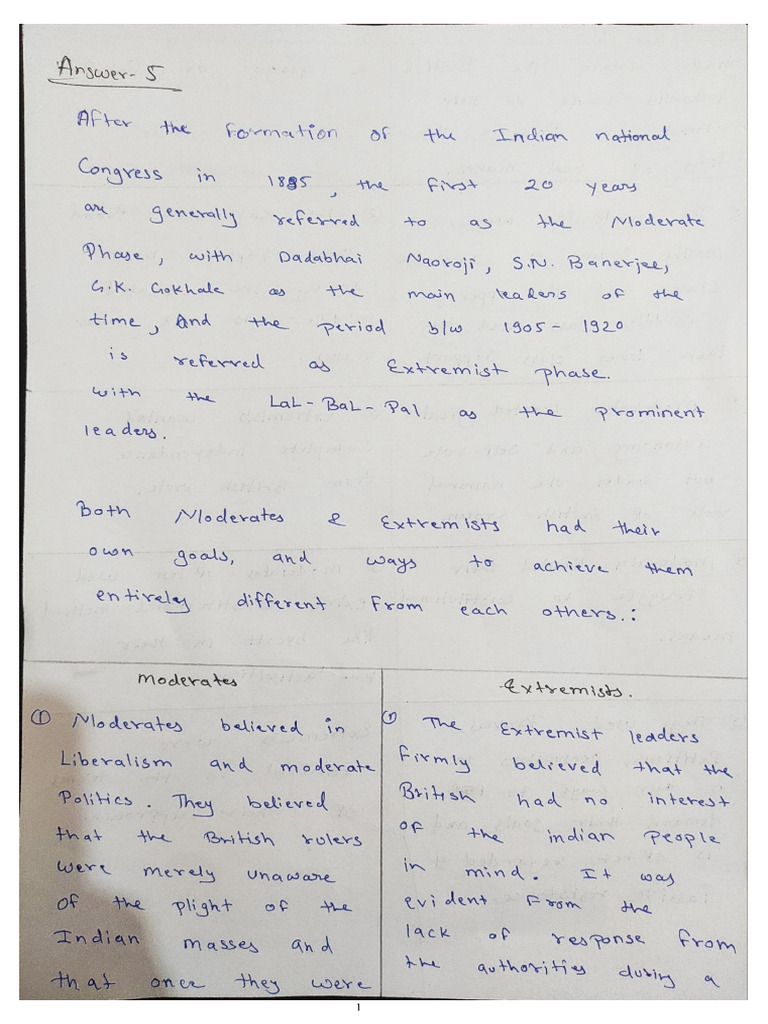 Answer- 5
After the Formation of the Indian national
Congress in 1885, the first 20 years
are generally referred to as the Moderate
Phase, with Dadabhai Naoroji, S.N. Banerjee,
G.K. Gokhale as the main leaders of the
time, And the period b/w 1905 - 1920
is referred as Extremist phase.
with the LaL - BaL - Pal as the prominent
leaders.
Both Moderates & Extremists had their
own goals, and ways to achieve them
entirely different from each others.:
Moderates
① Moderates believed in
Liberalism and moderate
Politics. They believed
that the British rulers
were merely unaware
of the plight of the
Indian masses and
that once they were
Extremists.
① The Extremist leaders
firmly believed that the
British had no interest
of the indian people
in mind. It was
evident from the
lack of response from
the authorities during a
1